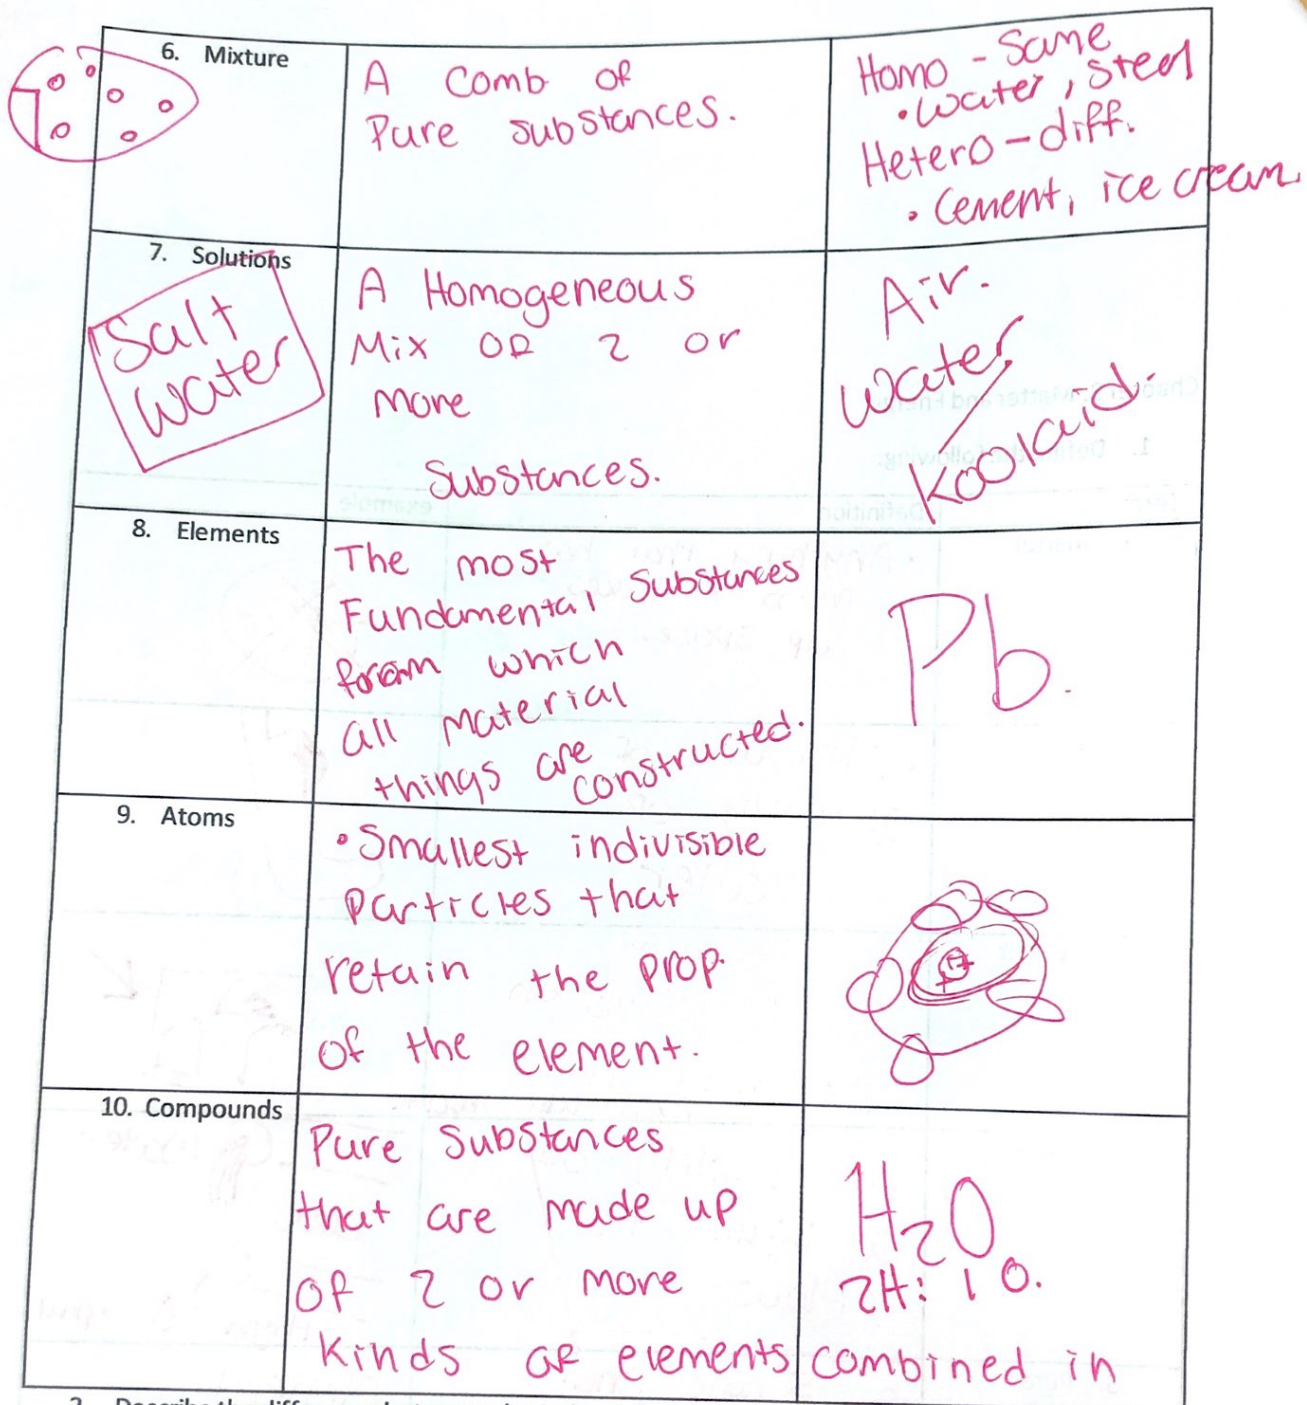 6. Mixture
A Comb of
Pure substances.
Homo - Same
• Water, steel
Hetero - diff.
• Cement, ice cream.
7. Solutions
Salt
Water
A Homogeneous
Mix of 2 or
more
Substances.
Air.
Water
Koolaid.
8. Elements
The most
Fundamental Substances
from which
all material
things are
constructed.
Pb.
9. Atoms
• Smallest indivisible
Particles that
retain the prop.
of the element.
10. Compounds
Pure Substances
that are made up
of 2 or more
Kinds of elements combined in
H₂O
2H: 1 O.